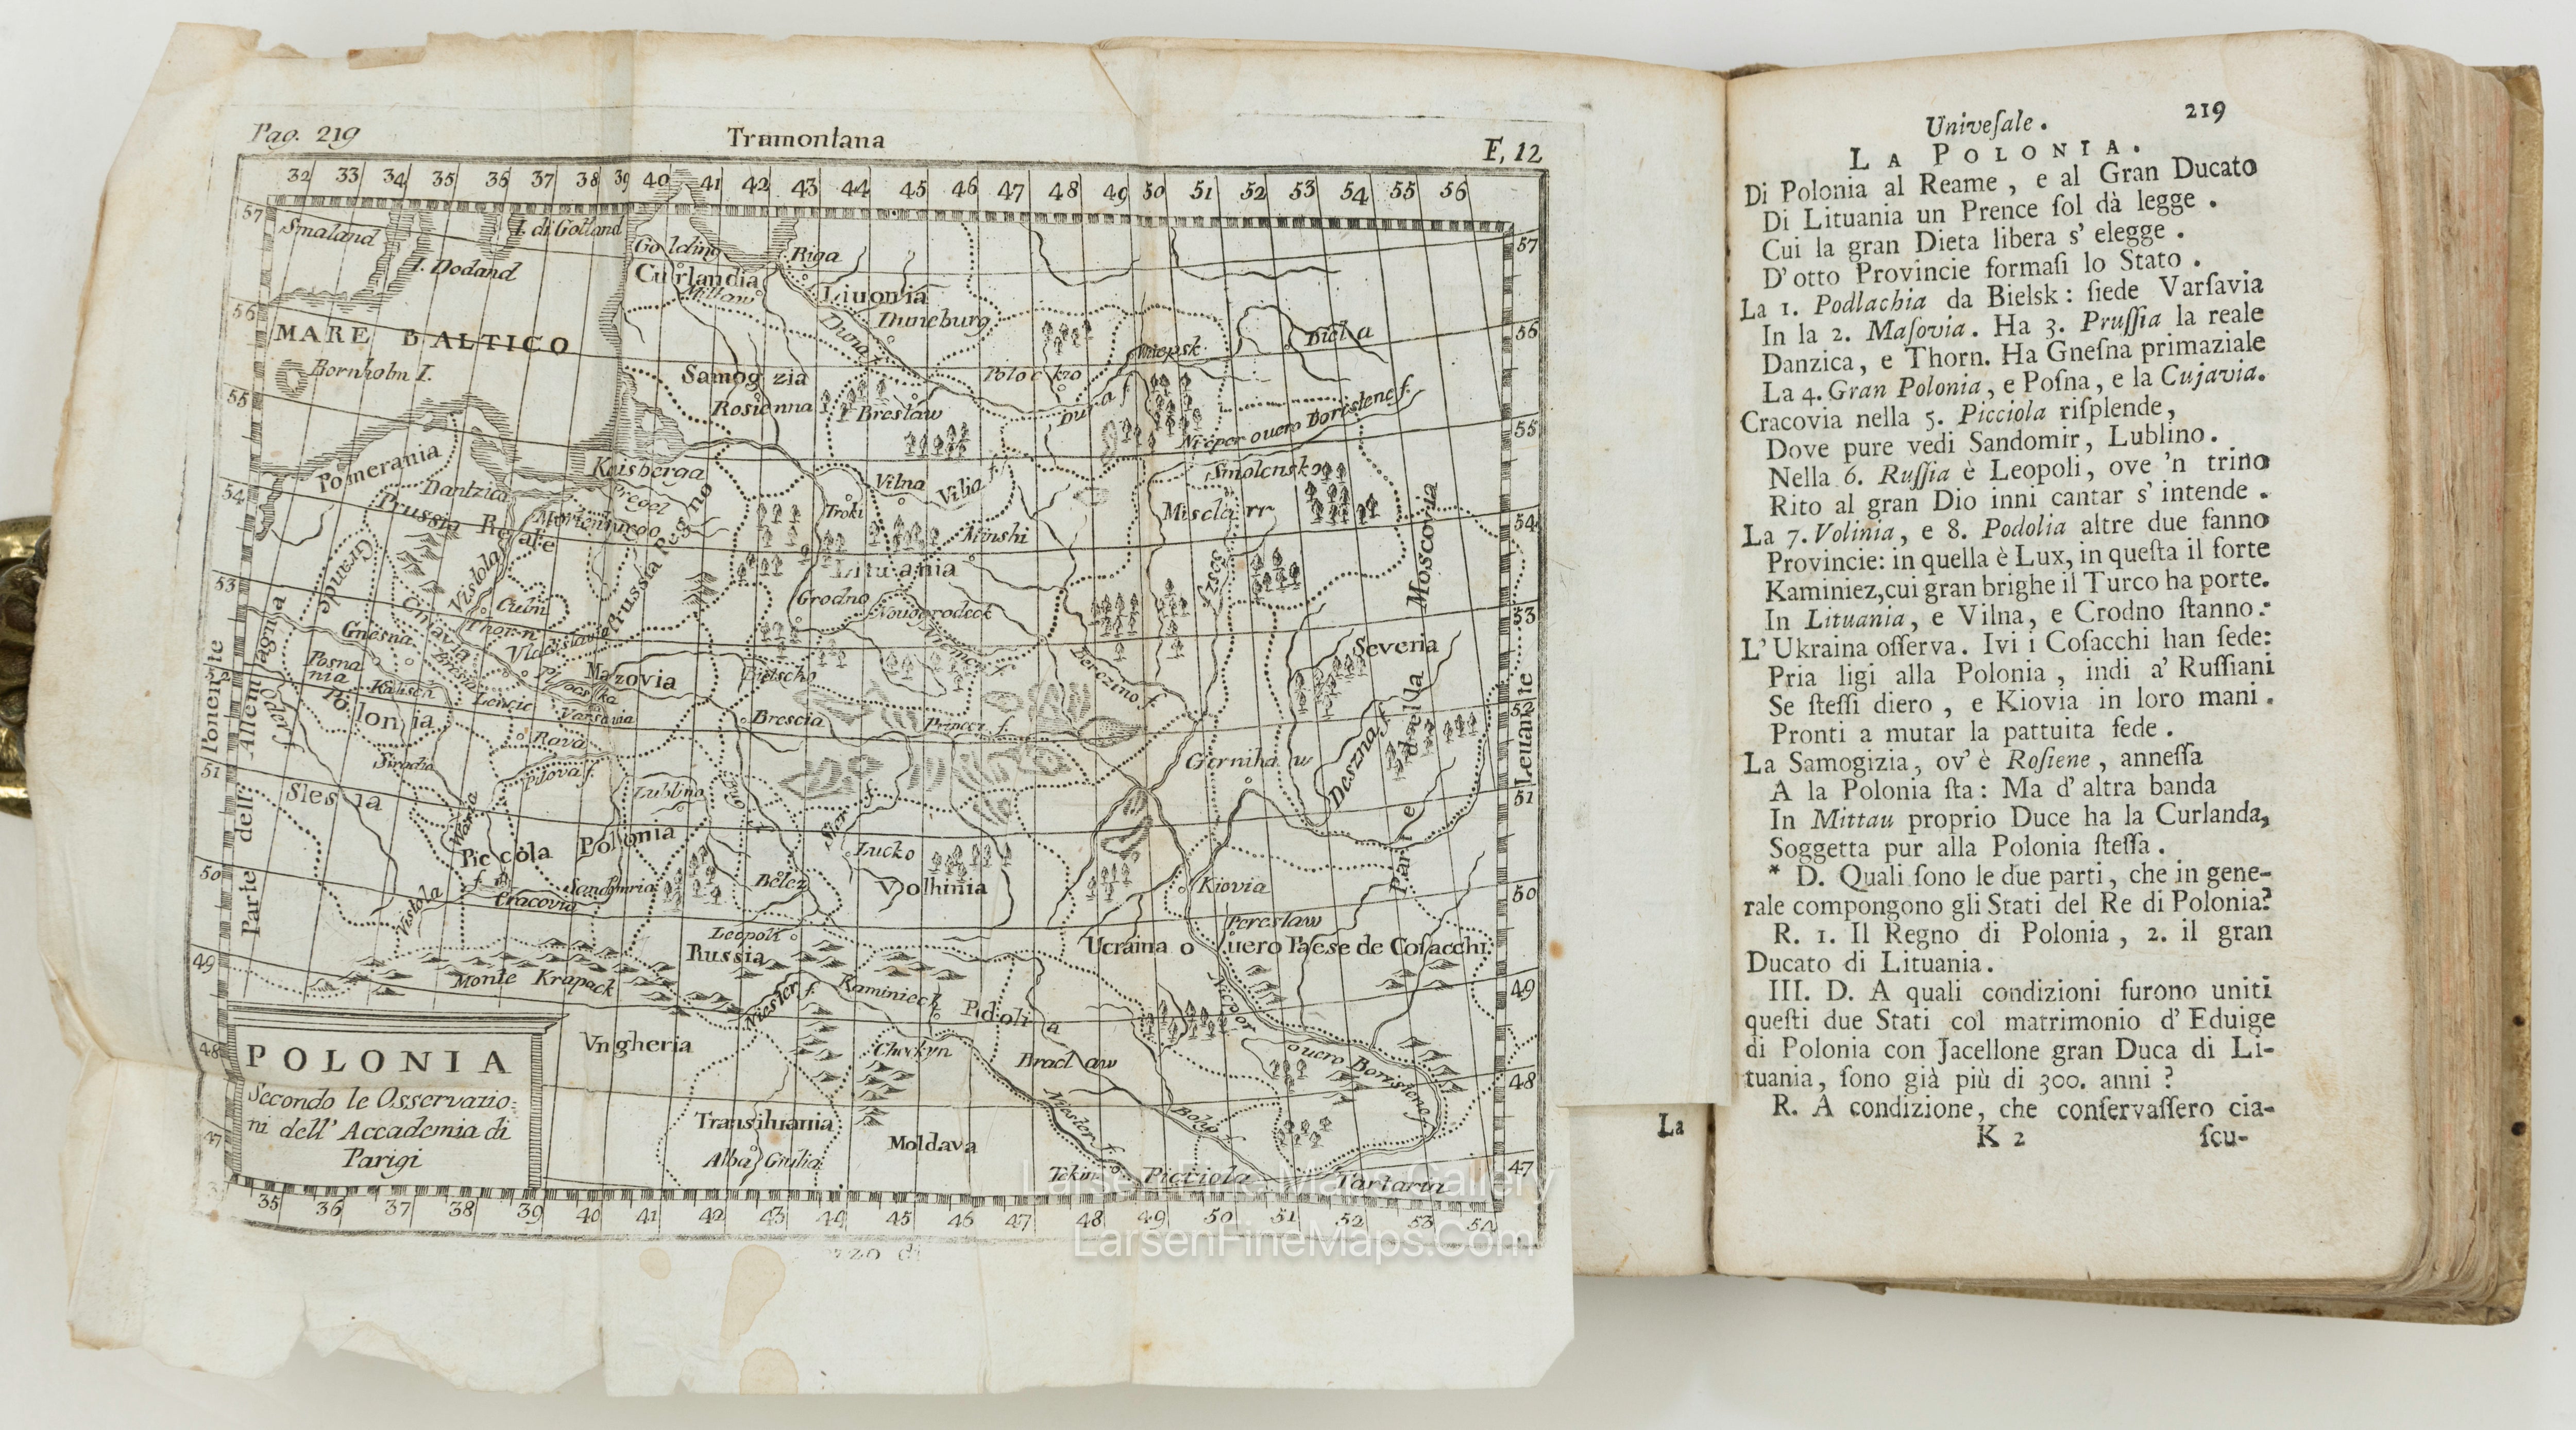 Pag. 219
Tramontana
F, 12
32 33 34 35 36 37 38 39 40 41 42 43 44 45 46 47 48 49 50 51 52 53 54 55 56
57
Smaland
I. di Gotland
Golding
Riga
57
I. Dodand
Curlandia
Mittaw
Liuonia
56
MARE BALTICO
Duna f.
Duneburg
Biela
56
Bornholm I.
Samogizia
Poloczko
Witepsk
55
Rosienna
Breslaw
Duna f.
Nieper ouero Boristene f.
55
Pomerania
Konisberga
Vilna
Vilia f.
Smolensko
54
Dantzica
Pregel
Troki
Prussia Reale
Marienburgo
Minski
Moscovia
54
Grande
Vistola
Prussia Regno
Lituania
Sosz f.
53
Culm
Grodno
Nouogrodeck
53
Cujavia
Thorn
Gnesna
Vladislavia
Niemen f.
Berezino f.
Severia
Posnania
Bresta
Plocska
Mazovia
Bielscho
52
Kalisch
Lencic
Varsavia
Brescia
Pripecz f.
52
Polonia
Oder f.
Rava
Ponente
Leuante
51
Siradia
Pilova f.
Czernihow
Deszna f.
della
Slesia
Lublino
Bug f.
Ster f.
51
Parte dell' Allemagna
Varta
Piccola Polonia
Lucko
Parte
50
Vistola f.
Cracovia
Sandomiria
Belcz
Volhinia
Kiovia
50
Leopoli
Pereslaw
Russia
Ucraina o uero Paese de Cosacchi
49
Monte Krapack
Niester f.
Kaminieck
Podolia
Nieper
49
48
POLONIA
Vngheria
Chockyn
Braclaw
ouero Boristene f.
48
Secondo le Osservazio:
ni dell' Accademia di
Parigi
Transiluania
Niester f.
Bohg f.
47
Alba Giulia
Moldava
Tekin
Picciola Tartaria
47
35 36 37 38 39 40 41 42 43 44 45 46 47 48 49 50 51 52 53 54
zzo di
La
Univeſale.
219
LA POLONIA.
Di Polonia al Reame, e al Gran Ducato
Di Lituania un Prence ſol dà legge.
Cui la gran Dieta libera s' elegge.
D' otto Provincie formaſi lo Stato.
La 1. Podlachia da Bielsk: ſiede Varſavia
In la 2. Maſovia. Ha 3. Pruſſia la reale
Danzica, e Thorn. Ha Gneſna primaziale
La 4. Gran Polonia, e Poſna, e la Cujavia.
Cracovia nella 5. Picciola riſplende,
Dove pure vedi Sandomir, Lublino.
Nella 6. Ruſſia è Leopoli, ove 'n trino
Rito al gran Dio inni cantar s' intende.
La 7. Volinia, e 8. Podolia altre due fanno
Provincie: in quella è Lux, in queſta il forte
Kaminiez, cui gran brighe il Turco ha porte.
In Lituania, e Vilna, e Crodno ſtanno:
L' Ukraina oſſerva. Ivi i Coſacchi han ſede:
Pria ligi alla Polonia, indi a' Ruſſiani
Se ſteſſi diero, e Kiovia in loro mani.
Pronti a mutar la pattuita fede.
La Samogizia, ov' è Roſiene, anneſſa
A la Polonia ſta: Ma d' altra banda
In Mittau proprio Duce ha la Curlanda,
Soggetta pur alla Polonia ſteſſa.
* D. Quali ſono le due parti, che in gene-
rale compongono gli Stati del Re di Polonia?
R. 1. Il Regno di Polonia, 2. il gran
Ducato di Lituania.
III. D. A quali condizioni furono uniti
queſti due Stati col matrimonio d' Eduige
di Polonia con Jacellone gran Duca di Li-
tuania, ſono già più di 300. anni?
R. A condizione, che conſervaſſero cia-
K 2
ſcu-
Larsen Fine Maps Gallery
LarsenFineMaps.Com